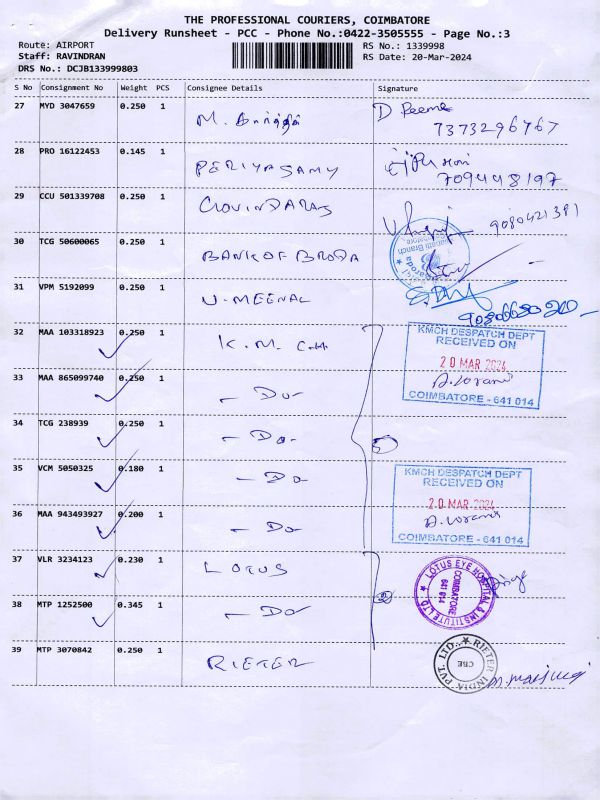 THE PROFESSIONAL COURIERS, COIMBATORE
Delivery Runsheet - PCC - Phone No.:0422-3505555 - Page No.:3
Route: AIRPORT
RS No.: 1339998
Staff: RAVINDRAN
RS Date: 20-Mar-2024
DRS No.: DCJB133999803
S No Consignment No Weight PCS Consignee Details Signature
27 MYD 3047659 0.250 1 M.
7373296767
28 PRO 16122453 0.145 1 PERIYASAMY
7094448197
29 CCU 501339708 0.250 1 GOVINDARAJ
9080421381
30 TCG 50600065 0.250 1 BANK OF BRODA
31 VPM 5192099 0.250 1 U. MEENAL
32 MAA 103318923 0.250 1 K. M. C.H
KMCH DESPATCH DEPT
RECEIVED ON
20 MAR 2024
COIMBATORE - 641 014
33 MAA 865099740 0.250 1 - Do -
34 TCG 238939 0.250 1 - Do -
5
35 VCM 5050325 0.180 1 - Do
KMCH DESPATCH DEPT
RECEIVED ON
20 MAR 2024
COIMBATORE - 641 014
36 MAA 943493927 0.200 1 - Do -
37 VLR 3234123 0.230 1 LOTUS
LOTUS EYE HOSPITAL & INSTITUTE LTD
COIMBATORE
641 014
38 MTP 1252500 0.345 1 - Do -
2
39 MTP 3070842 0.250 1 RIETER
RIETER INDIA PVT. LTD.
CBE